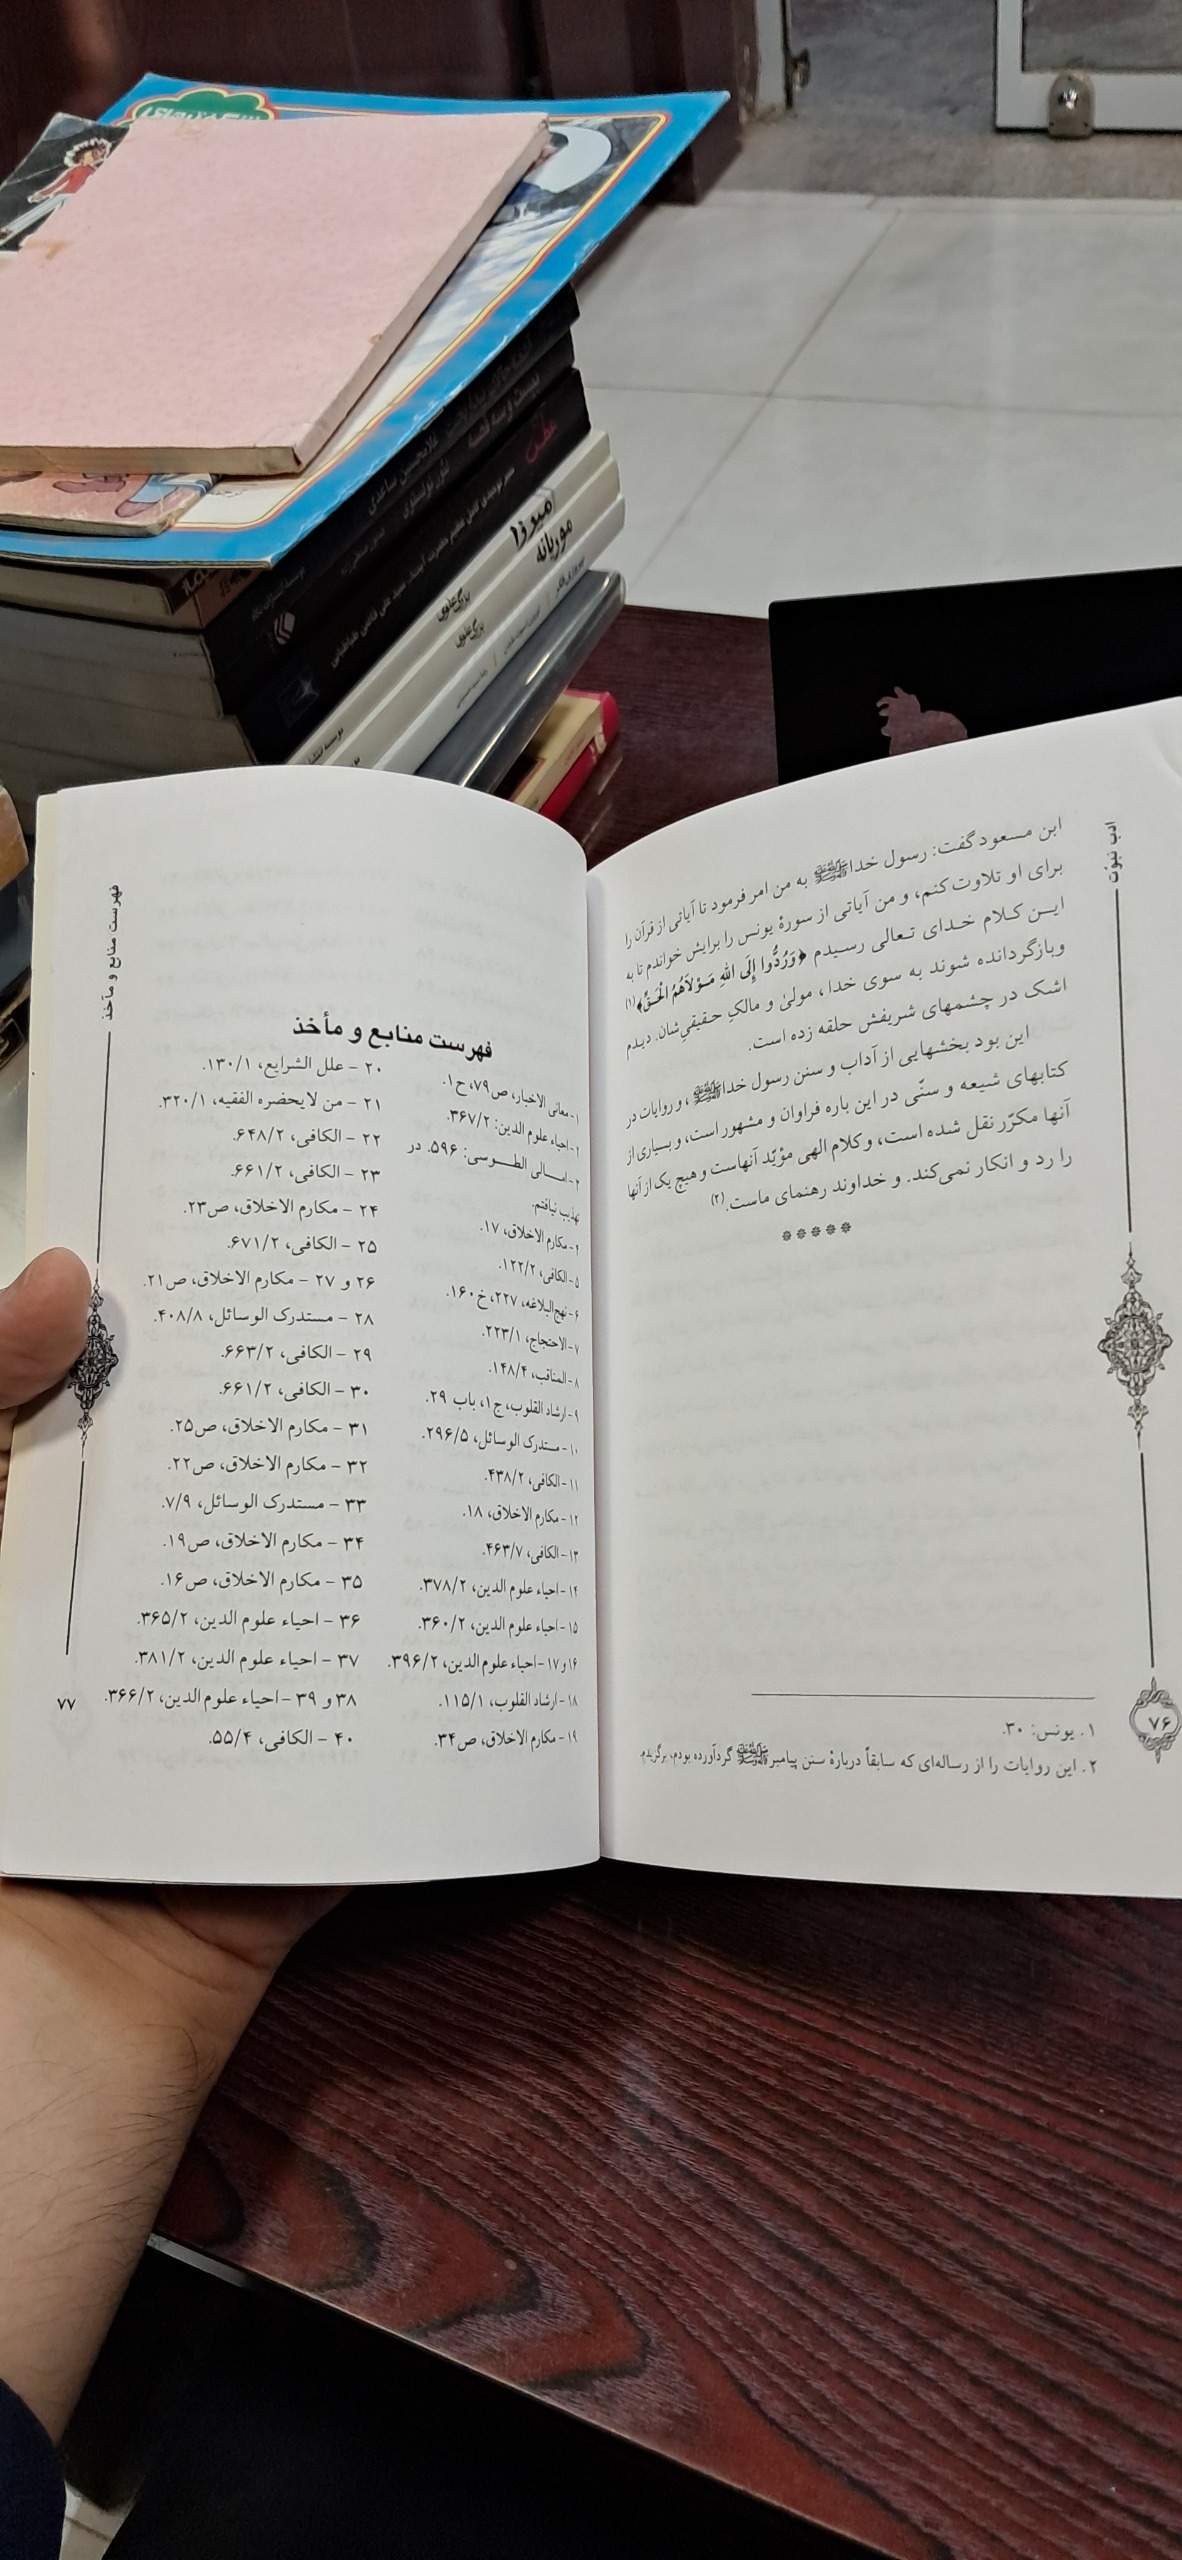 میرزا
بزرگ علوی
موریانه
بزرگ علوی
ادب نبوّت
ابن مسعود گفت: رسول خداﷺ به من امر فرمود تا آیاتی از قرآن را
برای او تلاوت کنم، و من آیاتی از سورهٔ یونس را برایش خواندم تا به
ایـن کـلام خـدای تـعالی رسـیدم ﴿وَرُدُّوا إِلَی اللهِ مَـوْلاَهُمُ الْحَـقِّ﴾(۱)
وبازگردانده شوند به سوی خدا، مولیٰ و مالکِ حـقیقی‌شان. دیـدم
اشک در چشمهای شریفش حلقه زده است.
این بود بخشهایی از آداب و سنن رسول خداﷺ، و روایات در
کتابهای شیعه و سنّی در این باره فراوان و مشهور است، و بسیاری از
آنها مکرّر نقل شده است، وکلام الهی مؤیّد آنهاست و هیچ یک از آنها
را رد و انکار نمی‌کند. و خداوند رهنمای ماست.(۲)
*****
۱. یونس: ۳۰.
۲. این روایات را از رساله‌ای که سابقاً دربارهٔ سنن پیامبرﷺ گردآورده بودم، برگزیدم.
۷۶
فهرست منابع و مآخذ
فهرست منابع و مأخذ
۱- معانی الاخبار، ص۷۹، ح۱.
۲- احیاء علوم الدین: ۳۶۷/۲.
۳- امـــالی الطـــوسی: ۵۹۶. در
تهذیب نیافتم.
۴- مکارم الاخلاق، ۱۷.
۵- الکافی، ۱۲۲/۲.
۶- نهج‌البلاغه، ۲۲۷، خ۱۶۰.
۷- الاحتجاج، ۲۲۳/۱.
۸- المناقب، ۱۴۸/۴.
۹- ارشاد القلوب، ج۱، باب ۲۹.
۱۰- مستدرک الوسائل، ۲۹۶/۵.
۱۱- الکافی، ۴۳۸/۲.
۱۲- مکارم الاخلاق، ۱۸.
۱۳- الکافی، ۴۶۳/۷.
۱۴- احیاء علوم الدین، ۳۷۸/۲.
۱۵- احیاء علوم الدین، ۳۶۰/۲.
۱۶و۱۷- احیاء علوم الدین، ۳۹۶/۲.
۱۸- ارشاد القلوب، ۱۱۵/۱.
۱۹- مکارم الاخلاق، ص۳۴.
۲۰ - علل الشرایع، ۱۳۰/۱.
۲۱ - من لایحضره الفقیه، ۳۲۰/۱.
۲۲ - الکافی، ۶۴۸/۲.
۲۳ - الکافی، ۶۶۱/۲.
۲۴ - مکارم الاخلاق، ص۲۳.
۲۵ - الکافی، ۶۷۱/۲.
۲۶ و ۲۷ - مکارم الاخلاق، ص۲۱.
۲۸ - مستدرک الوسائل، ۴۰۸/۸.
۲۹ - الکافی، ۶۶۳/۲.
۳۰ - الکافی، ۶۶۱/۲.
۳۱ - مکارم الاخلاق، ص۲۵.
۳۲ - مکارم الاخلاق، ص۲۲.
۳۳ - مستدرک الوسائل، ۷/۹.
۳۴ - مکارم الاخلاق، ص۱۹.
۳۵ - مکارم الاخلاق، ص۱۶.
۳۶ - احیاء علوم الدین، ۳۶۵/۲.
۳۷ - احیاء علوم الدین، ۳۸۱/۲.
۳۸ و ۳۹ - احیاء علوم الدین، ۳۶۶/۲.
۴۰ - الکافی، ۵۵/۴.
۷۷